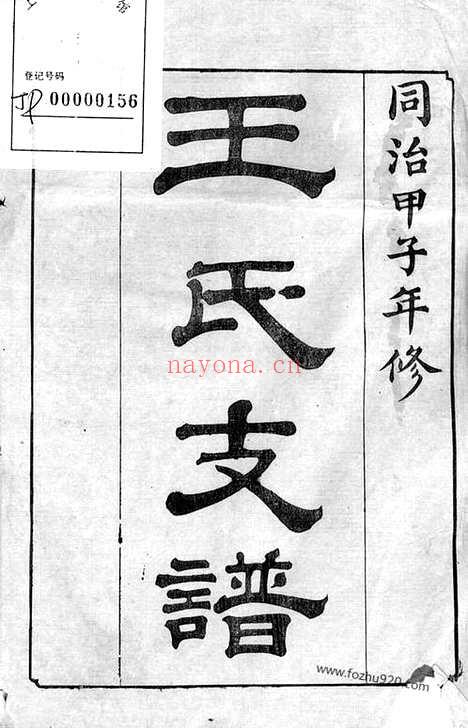 登记号码
JP 00000156
同治甲子年修
王氏支譜
nayona.cn
www.fozhu920.com